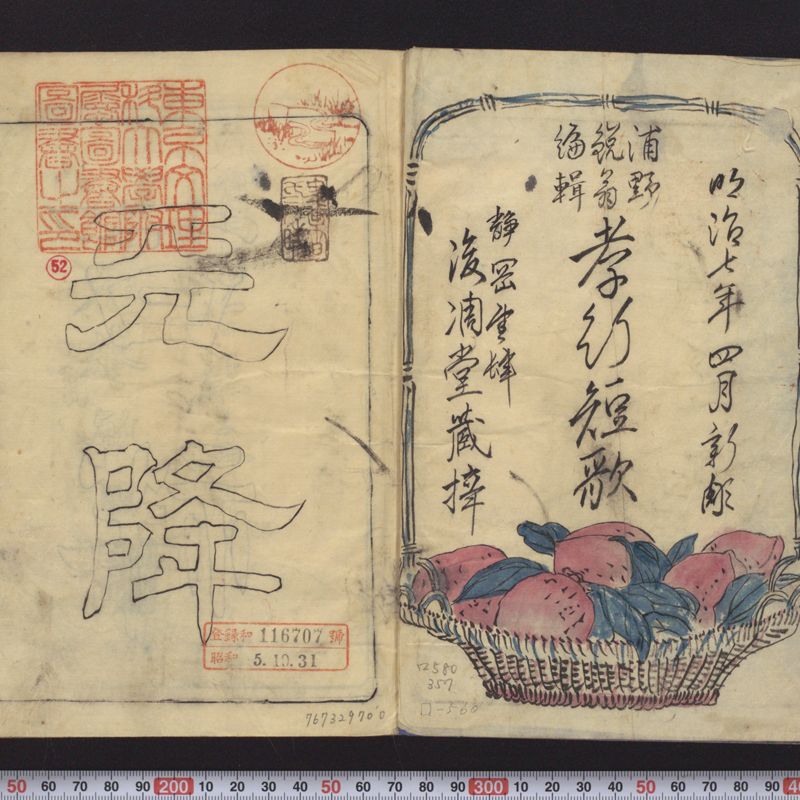 明治七年四月新彫
浦野
鋭翁
編輯
孝行短歌
静岡書肆
後凋堂蔵梓
東京文理
科大学附
属図書館
図書之印
52
元
降
登録和 116707 號
昭和 5.10.31
767329700
ロ580
357
ロ-560
50 60 70 80 90 200 10 20 30 40 50 60 70 80 90 300 10 20 30 40 50 60 70 80 90